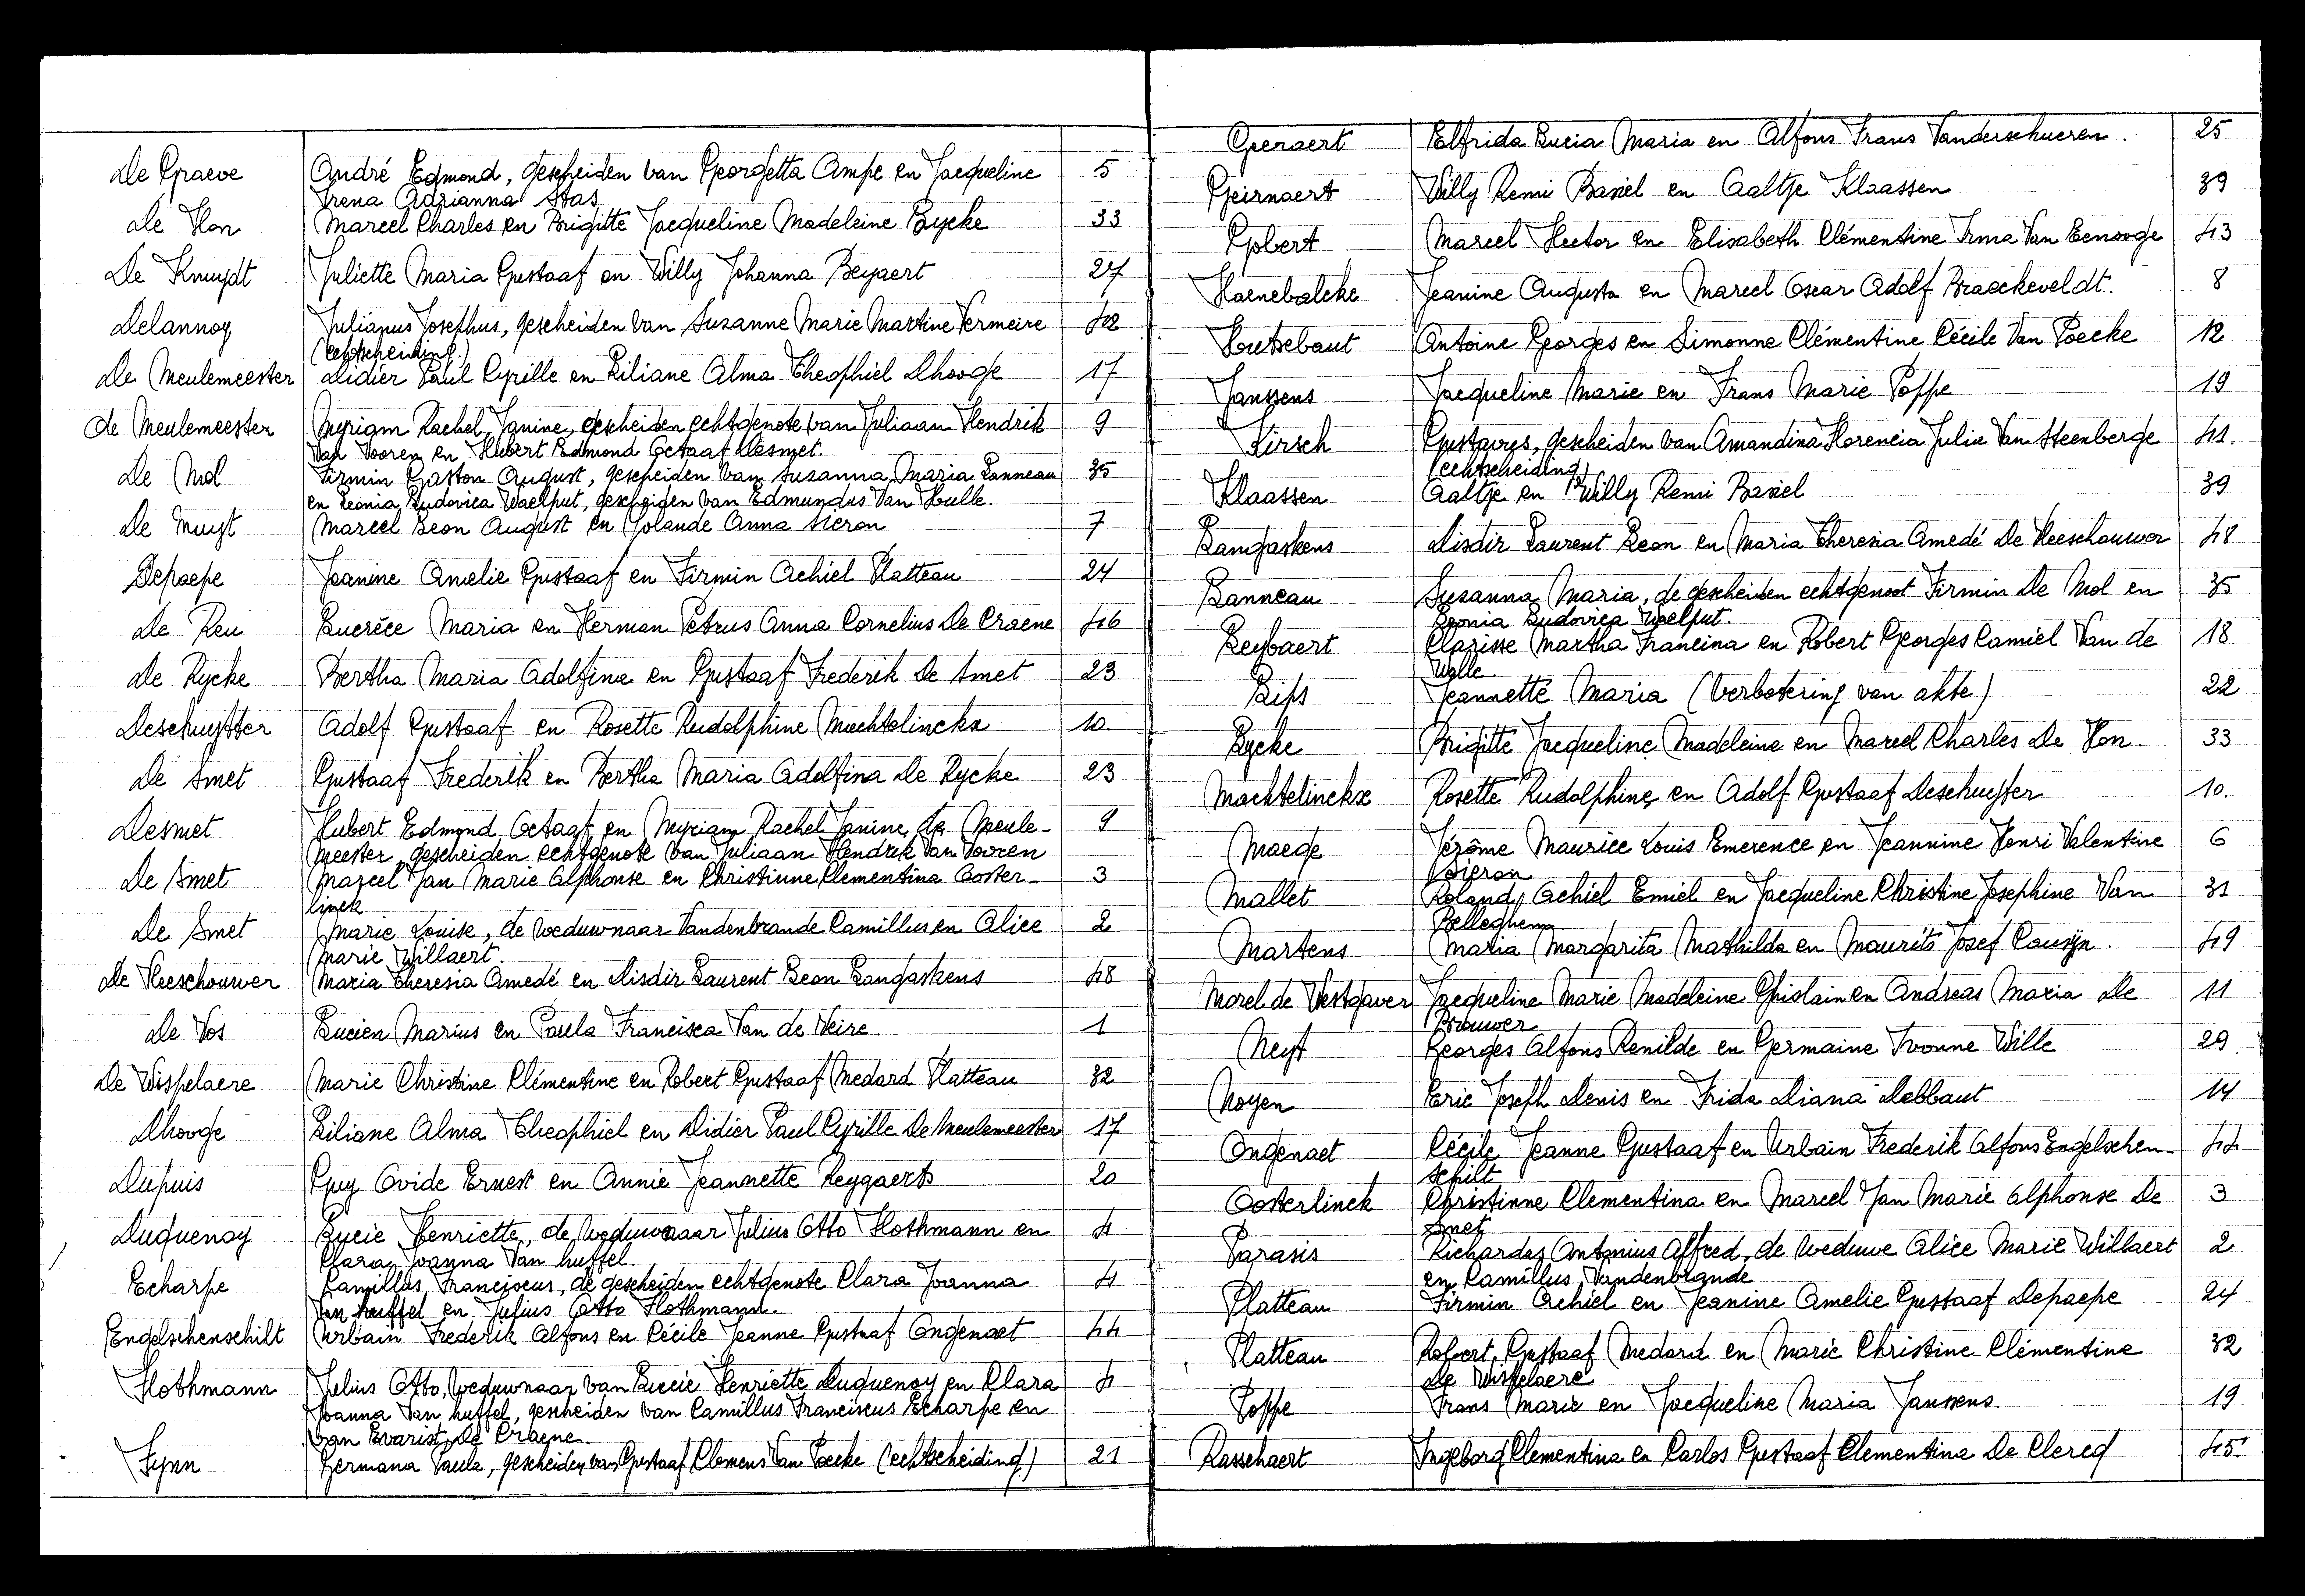 De Graeve André Edmond, gescheiden van Georgetta Ampe en Jacqueline 5
Irena Adrianna Stas
De Hon Marcel Charles en Brigitte Jacqueline Madeleine Lycke 33
De Knuydt Juliette Maria Gustaaf en Willy Johanna Beyaert 27
Delannoy Julianus Josephus, gescheiden van Suzanne Marie Martine Vermeire 42
(echtscheiding.)
De Meulemeester Didier Paul Cyrille en Liliane Alma Theophiel Dhooge 17
de Meulemeester Myriam Rachel Janine, gescheiden echtgenote van Juliaan Hendrik 9
Van Vooren en Hubert Edmond Octaaf Desmet.
De Mol Firmin Gaston August, gescheiden van Susanna Maria Lanneau 35
en Leonia Ludovica Waelput, gescheiden van Edmundus Van Hulle.
De Muyt Marcel Leon August en Yolande Anna Sieron 7
Depaepe Jeanine Amelie Gustaaf en Firmin Achiel Platteau 24
De Reu Lucrèce Maria en Herman Petrus Anna Cornelius De Craene 46
De Rycke Bertha Maria Adolfina en Gustaaf Frederik De Smet 23
Deschuyfter Adolf Gustaaf en Rosette Rudolphine Machtelinckx 10.
De Smet Gustaaf Frederik en Bertha Maria Adolfina De Rycke 23
Desmet Hubert Edmond Octaaf en Myriam Rachel Janine de Meule- 9
meester, gescheiden echtgenote van Juliaan Hendrik Van Vooren
De Smet Marcel Jan Marie Alphonse en Christinne Clementina Ooster- 3
linck
De Smet Marie Louise, de weduwnaar Vandenbrande Camillus en Alice 2
Marie Willaert.
De Vleeschouwer Maria Theresia Amedé en Disdir Laurent Leon Langaskens 48
De Vos Lucien Marius en Paula Francisca Van de Veire 1
De Wispelaere Marie Christine Clémentine en Robert Gustaaf Medard Platteau 32
Dhooge Liliane Alma Theophiel en Didier Paul Cyrille De Meulemeester 17
Dupuis Guy Ovide Ernest en Annie Jeannette Reygaerts 20
Duquenoy Lucie Henriette, de weduwnaar Julius Otto Hothmann en 4
Clara Joanna Van huffel.
Echarpe Camillus Franciscus, de gescheiden echtgenote Clara Joanna 4
Van huffel en Julius Otto Hothmann.
Engelschenschilt Urbain Frederik Alfons en Cécile Jeanne Gustaaf Ongenaet 44
Hothmann Julius Otto, weduwnaar van Lucie Henriette Duquenoy en Clara 4
Joanna Van huffel, gescheiden van Camillus Franciscus Echarpe en
van Evarist De Craene.
Fynn Germana Paula, gescheiden van Gustaaf Clemens Van Poecke (echtscheiding) 21
Geenaert Elfrida Lucia Maria en Alfons Frans Vanderschueren. 25
Geirnaert Willy Remi Basiel en Aaltje Klaassen 39
Gobert Marcel Hector en Elisabeth Clémentine Irma Van Eenooge 43
Haenebalcke Jeanine Augusta en Marcel Oscar Adolf Braeckeveldt. 8
Houtsebaut Antoine Georges en Simonne Clémentine Cécile Van Poecke 12
Janssens Jacqueline Marie en Frans Marie Poppe 19
Kirsch Gustaves, gescheiden van Amandina Florencia Julia Van Steenberge 41.
(echtscheiding)
Klaassen Aaltje en Willy Remi Basiel 39
Langaskens Disdir Laurent Leon en Maria Theresia Amedé De Vleeschouwer 48
Lanneau Susanna Maria, de gescheiden echtgenoot Firmin De Mol en 35
Leonia Ludovica Waelput.
Leybaert Clarisse Martha Francina en Robert Georges Camiel Van de 18
Walle
Lips Jeannette Maria (verbetering van akte) 22
Lycke Brigitte Jacqueline Madeleine en Marcel Charles De Hon. 33
Machtelinckx Rosette Rudolphine en Adolf Gustaaf Deschuyfter 10.
Maege Jérôme Maurice Louis Emerence en Jeannine Henri Valentine 6
Sieron
Mallet Roland Achiel Emiel en Jacqueline Christine Josephine Van 31
Belleghem
Martens Maria Margarita Mathilda en Maurits Josef Causyn. 49
Morel de Westgaver Jacqueline Marie Madeleine Ghislain en Andreas Maria De 11
Brouwer
Neyt Georges Alfons Renilde en Germaine Yvonne Wille 29.
Noyen Eric Joseph Denis en Frida Diana Debbaut 14
Ongenaet Cécile Jeanne Gustaaf en Urbain Frederik Alfons Engelschen- 44
schilt
Oosterlinck Christinne Clementina en Marcel Jan Marie Alphonse De 3
Smet
Parasis Richardus Antonius Alfred, de weduwe Alice Marie Willaert 2
en Camillus Vandenbrande
Platteau Firmin Achiel en Jeanine Amelie Gustaaf Depaepe 24
Platteau Robert Gustaaf Medard en Marie Christine Clémentine 32
De Wispelaere
Poppe Frans Marie en Jacqueline Maria Janssens. 19
Rasschaert Ingeborg Clementina en Carlos Gustaaf Clementina De Clercq 45.